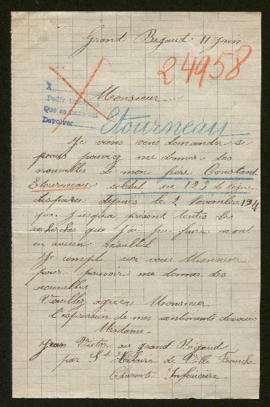 Grand Bégaud 11 juin
24958
Monsieur
Etourneau
Je viens vous demander si
vous pouvez me donner des
nouvelles de mon frère Constant
Etourneau soldat au 123 de ligne
disparu depuis le 2 Novembre 1914
qui jusqu'à présent toutes les
recherches que j'ai pu faire n'ont
eu aucun résultat
Je compte sur vous Monsieur
pour pouvoir me donner des
nouvelles
Veuillez agréer Monsieur
l'expression de mes sentiments
Madame
Jean au grand Bégaud
par St de
Charente Inférieure